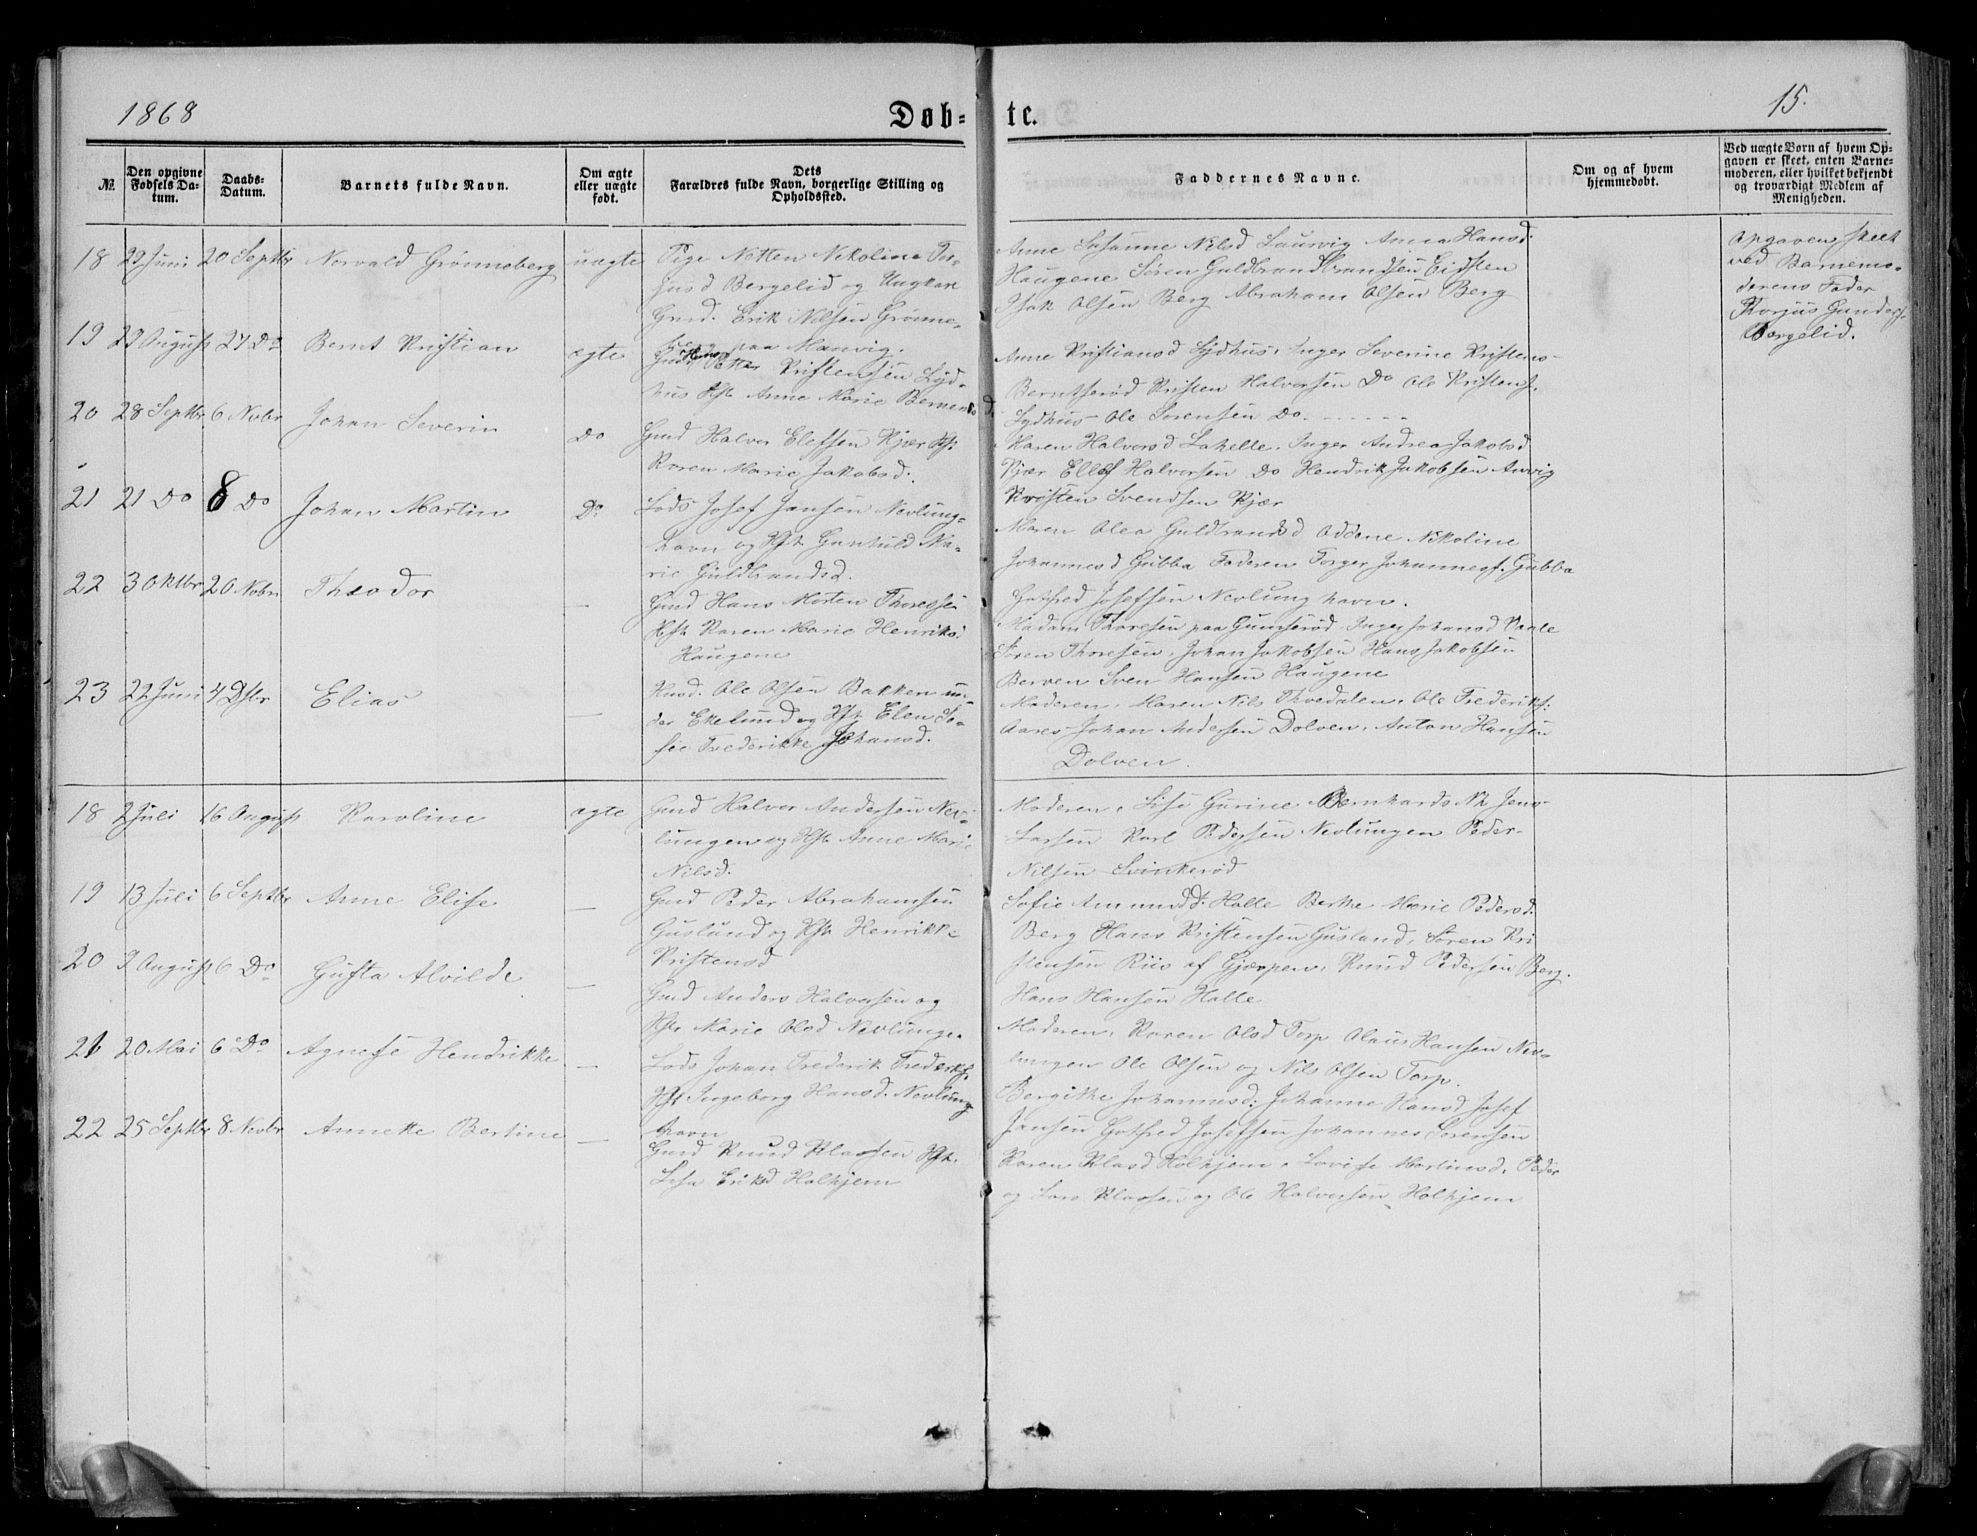 1868 Døb-te. 15.
№
Den opgivne Fødsels Datum.
Daabs-Datum.
Barnets fulde Navn.
Om ægte eller uægte født.
Dets Forældres fulde Navn, borgerlige Stilling og Opholdssted.
Faddernes Navne.
Om og af hvem hjemmedøbt.
Ved uægte Børn af hvem Opgaven er skeet, enten Barnemoderen, eller hvilket bekjendt og troværdigt Medlem af Menigheden.
18 22 Juni 20 Septbr Norvald Grønneberg uægte
Pige Netten Nikoline Tor-
jusd Bergelid og Ungkarl
Gmd. Erik Nilsen Grønne-
berg paa Manvig.
Anne Susanne Nilsd Laurvig Anna Hansd
Haugene Søren Guldbrandsen Eidsten
Isak Olsen Berg Abraham Olsen Berg
Opgaven skeet
ved Barnemo-
derens Fader
Thorjus Gunders.
Bergelid.
19 22 August 27 Do Bernt Kristian ægte
Petter Kristensen Syd-
hus Hst Anne Marie Berntsd
Anne Kristiansd Sydhus, Inger Severine Kristens-
Berntserød Kristen Halvorsen Do Ole Kristens.
Sydhus - Ole Sørensen Do
20 28 Septbr 6 Novbr Johan Severin Do
Gmd Halvor Elefsen Kjær Hst.
Karen Marie Jakobsd.
Maren Halvorsd Lakelle, Inger Andrea Jakobsd
Kjær Ellef Halvorsen Do Hendrik Jakobsen Anvig
Kristen Svendsen Kjær
21 21 Do 8 Do Johan Martin Do
Lods Josef Jansen Nevlung-
havn og Hst Gunhild Ma-
rie Guldbrandsd.
Maren Olea Guldbrandsd Oddane Nikoline
Johannesd Gubba Faderen Torger Johannesf. Gubba
Gotfred Josefsen Nevlunghavn.
22 3 Oktbr 20 Novbr Theodor —
Gmd Hans Morten Thoresen
Hst Karen Marie Henriks.
Haugene
Madam Thoresen paa Gumserød Inger Johansd Vaale
Søren Thoresen, Johan Jakobsen Hans Jakobsen
Berven Sven Hansen Haugene
23 22 Juni 4 Dsbr Elias —
Husd. Ole Olsen Bakken un-
der Ekelund og Hst Elen So-
fie Frederikke Johansd.
Moderen, Maren Nils Tvedalen, Ole Frederiks.
Aares Johan Andersen Dolven, Anton Hansen
Dolven.
18 2 Juli 16 August Karoline ægte
Gmd Halvor Andersen Nev-
lungen og Hst Anne Marie
Nilsd.
Moderen, Lise Gurine Bernhards Nk Jens
Larsen Karl Pedersen Nevlungen Peder-
Nilsen Svinkerød
19 13 Juli 6 Septbr Anne Elise —
Gmd Peder Abrahamsen
Gusland og Hst Henrikke
Kristensd
Sofie Amundsd. Halle Berthe Marie Pedersd.
Berg Hans Kristensen Gusland, Søren Kri
stensen Riis af Gjerpen, Knud Pedersen Berg.
Hans Hansen Halle
20 9 August 6 Do Gusta Alvilde —
Gmd Anders Halvorsen og
Hst Marie Olsd Nevlunge.
Moderen, Karen Olsd Torp Olaus Hansen Nev-
lungen Ole Olsen og Nils Olsen Torp.
21 20 Mai 6 Do Agnese Hendrikke —
Lods Johan Frederik Frederiks.
Hst Ingeborg Hansd. Nevlung
havn
Bergithe Johannesd; Johanne Hansd Josef
Jansen Gotfred Josefsen Johannes Sørensen
22 25 Septbr 8 Novbr Annette Bertine —
Gmd Knud Klausen Hst.
Lisa Eriksd Halhjem
Karen Klasd Holhjem, Lovise Martinsd, Peder
og Lars Klausen og Ole Halvorsen Holhjem